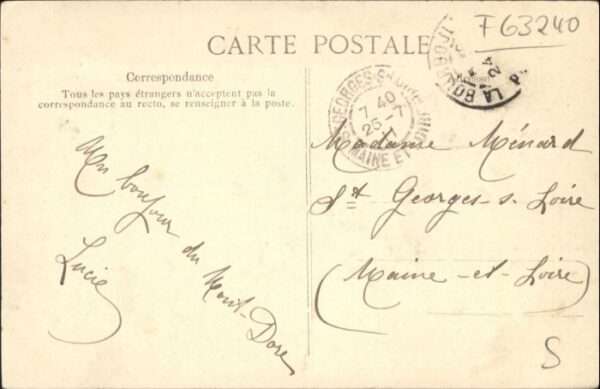 F63240
CARTE POSTALE
Correspondance
Tous les pays étrangers n'acceptent pas la
correspondance au recto, se renseigner à la poste.
Un bonjour du Mont-Dore
Lucie
ST GEORGES-S-LOIRE
7 40
26-7
MAINE ET LOIRE
LA BOURBOULE
Madame Ménard
St Georges-s-Loire
(Maine-et-Loire)
S